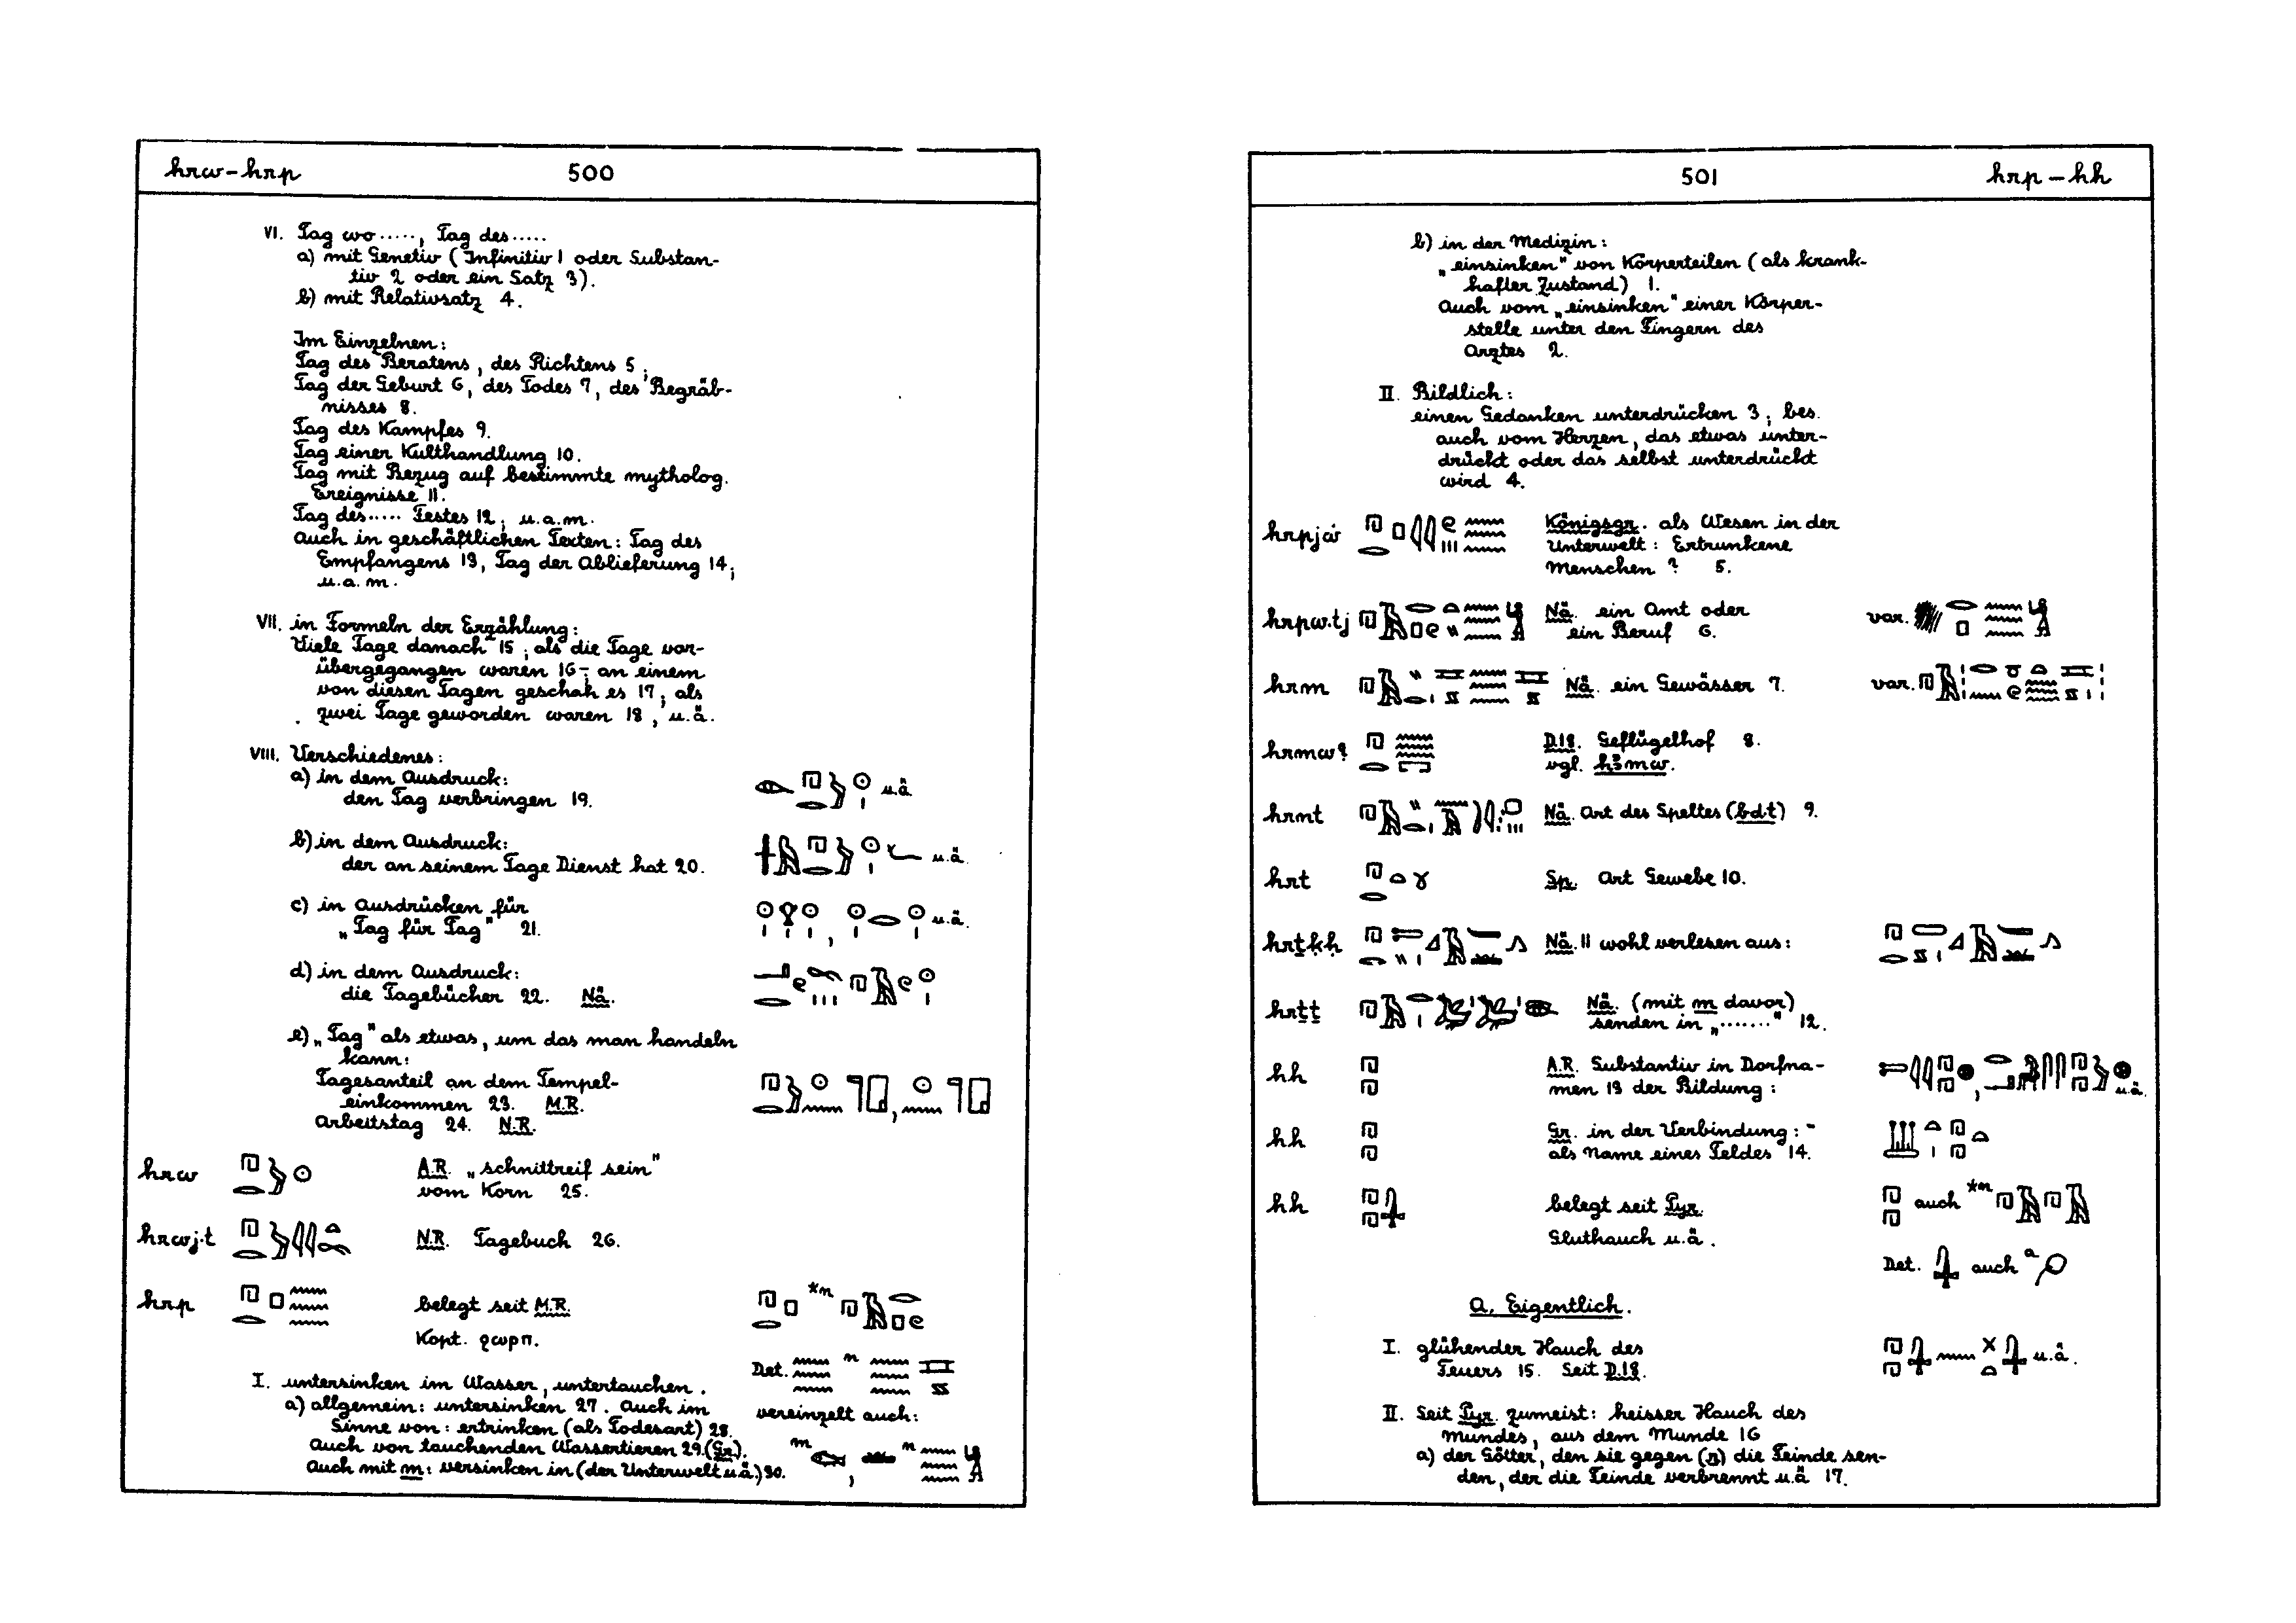 hrw – hrp 500
VI. Tag wo ....., Tag des .....
a) mit Genetiv (Infinitiv 1 oder Substan-
tiv 2 oder ein Satz 3).
b) mit Relativsatz 4.
Im Einzelnen:
Tag des Beratens, des Richtens 5;
Tag der Geburt 6, des Todes 7, des Begräb-
nisses 8.
Tag des Kampfes 9.
Tag einer Kulthandlung 10.
Tag mit Bezug auf bestimmte mytholog.
Ereignisse 11.
Tag des ..... Festes 12; u.a.m.
Auch in geschäftlichen Texten: Tag des
Empfangens 13, Tag der Ablieferung 14;
u.a.m.
VII. in Formeln der Erzählung:
Viele Tage danach 15; als die Tage vor-
übergegangen waren 16; an einem
von diesen Tagen geschah es 17; als
zwei Tage geworden waren 18, u.ä.
VIII. Verschiedenes:
a) in dem Ausdruck:
den Tag verbringen 19. u.ä.
b) in dem Ausdruck:
der an seinem Tage Dienst hat 20. u.ä.
c) in Ausdrücken für
„Tag für Tag" 21. u.ä.
d) in dem Ausdruck:
die Tagebücher 22. Nä.
e) „Tag" als etwas, um das man handeln
kann:
Tagesanteil an dem Tempel-
einkommen 23. M.R.
Arbeitstag 24. N.R.
hrw A.R. „schnittreif sein"
vom Korn 25.
hrwj.t N.R. Tagebuch 26.
hrp belegt seit M.R. *m
Kopt. ϩωρπ.
Det. n
I. untersinken im Wasser, untertauchen.
a) allgemein: untersinken 27. Auch im vereinzelt auch:
Sinne von: ertrinken (als Todesart) 28.
Auch von tauchenden Wassertieren 29. (Gr). m , n
Auch mit m: versinken in (der Unterwelt u.ä.) 30.
501 hrp – hh
b) in der Medizin:
„einsinken" von Körperteilen (als krank-
hafter Zustand) 1.
Auch vom „einsinken" einer Körper-
stelle unter den Fingern des
Arztes 2.
II. Bildlich:
einen Gedanken unterdrücken 3; bes.
auch vom Herzen, das etwas unter-
drückt oder das selbst unterdrückt
wird 4.
hrpjw Königsgr. als Wesen in der
Unterwelt: Ertrunkene
Menschen ? 5.
hrpw.tj Nä. ein Amt oder var.
ein Beruf 6.
hrm Nä. ein Gewässer 7. var.
hrmw? D.18. Geflügelhof 8.
vgl. hꜣmw.
hrnt Nä. Art des Speltes (bd.t) 9.
hrt Sp. Art Gewebe 10.
hrṯkḥ Nä. 11 wohl verlesen aus:
hrṯṯ Nä. (mit m davor)
senden in „......." 12.
hh A.R. Substantiv in Dorfna-
men 13 der Bildung: u.ä.
hh Gr. in der Verbindung:
als Name eines Feldes 14.
hh belegt seit Pyr. auch *m
Gluthauch u.ä.
Det. auch a
A. Eigentlich.
I. glühender Hauch des
Feuers 15. Seit D.18. u.ä.
II. Seit Pyr. zumeist: heisser Hauch des
Mundes, aus dem Munde 16
a) der Götter, den sie gegen (r) die Feinde sen-
den, der die Feinde verbrennt u.ä. 17.